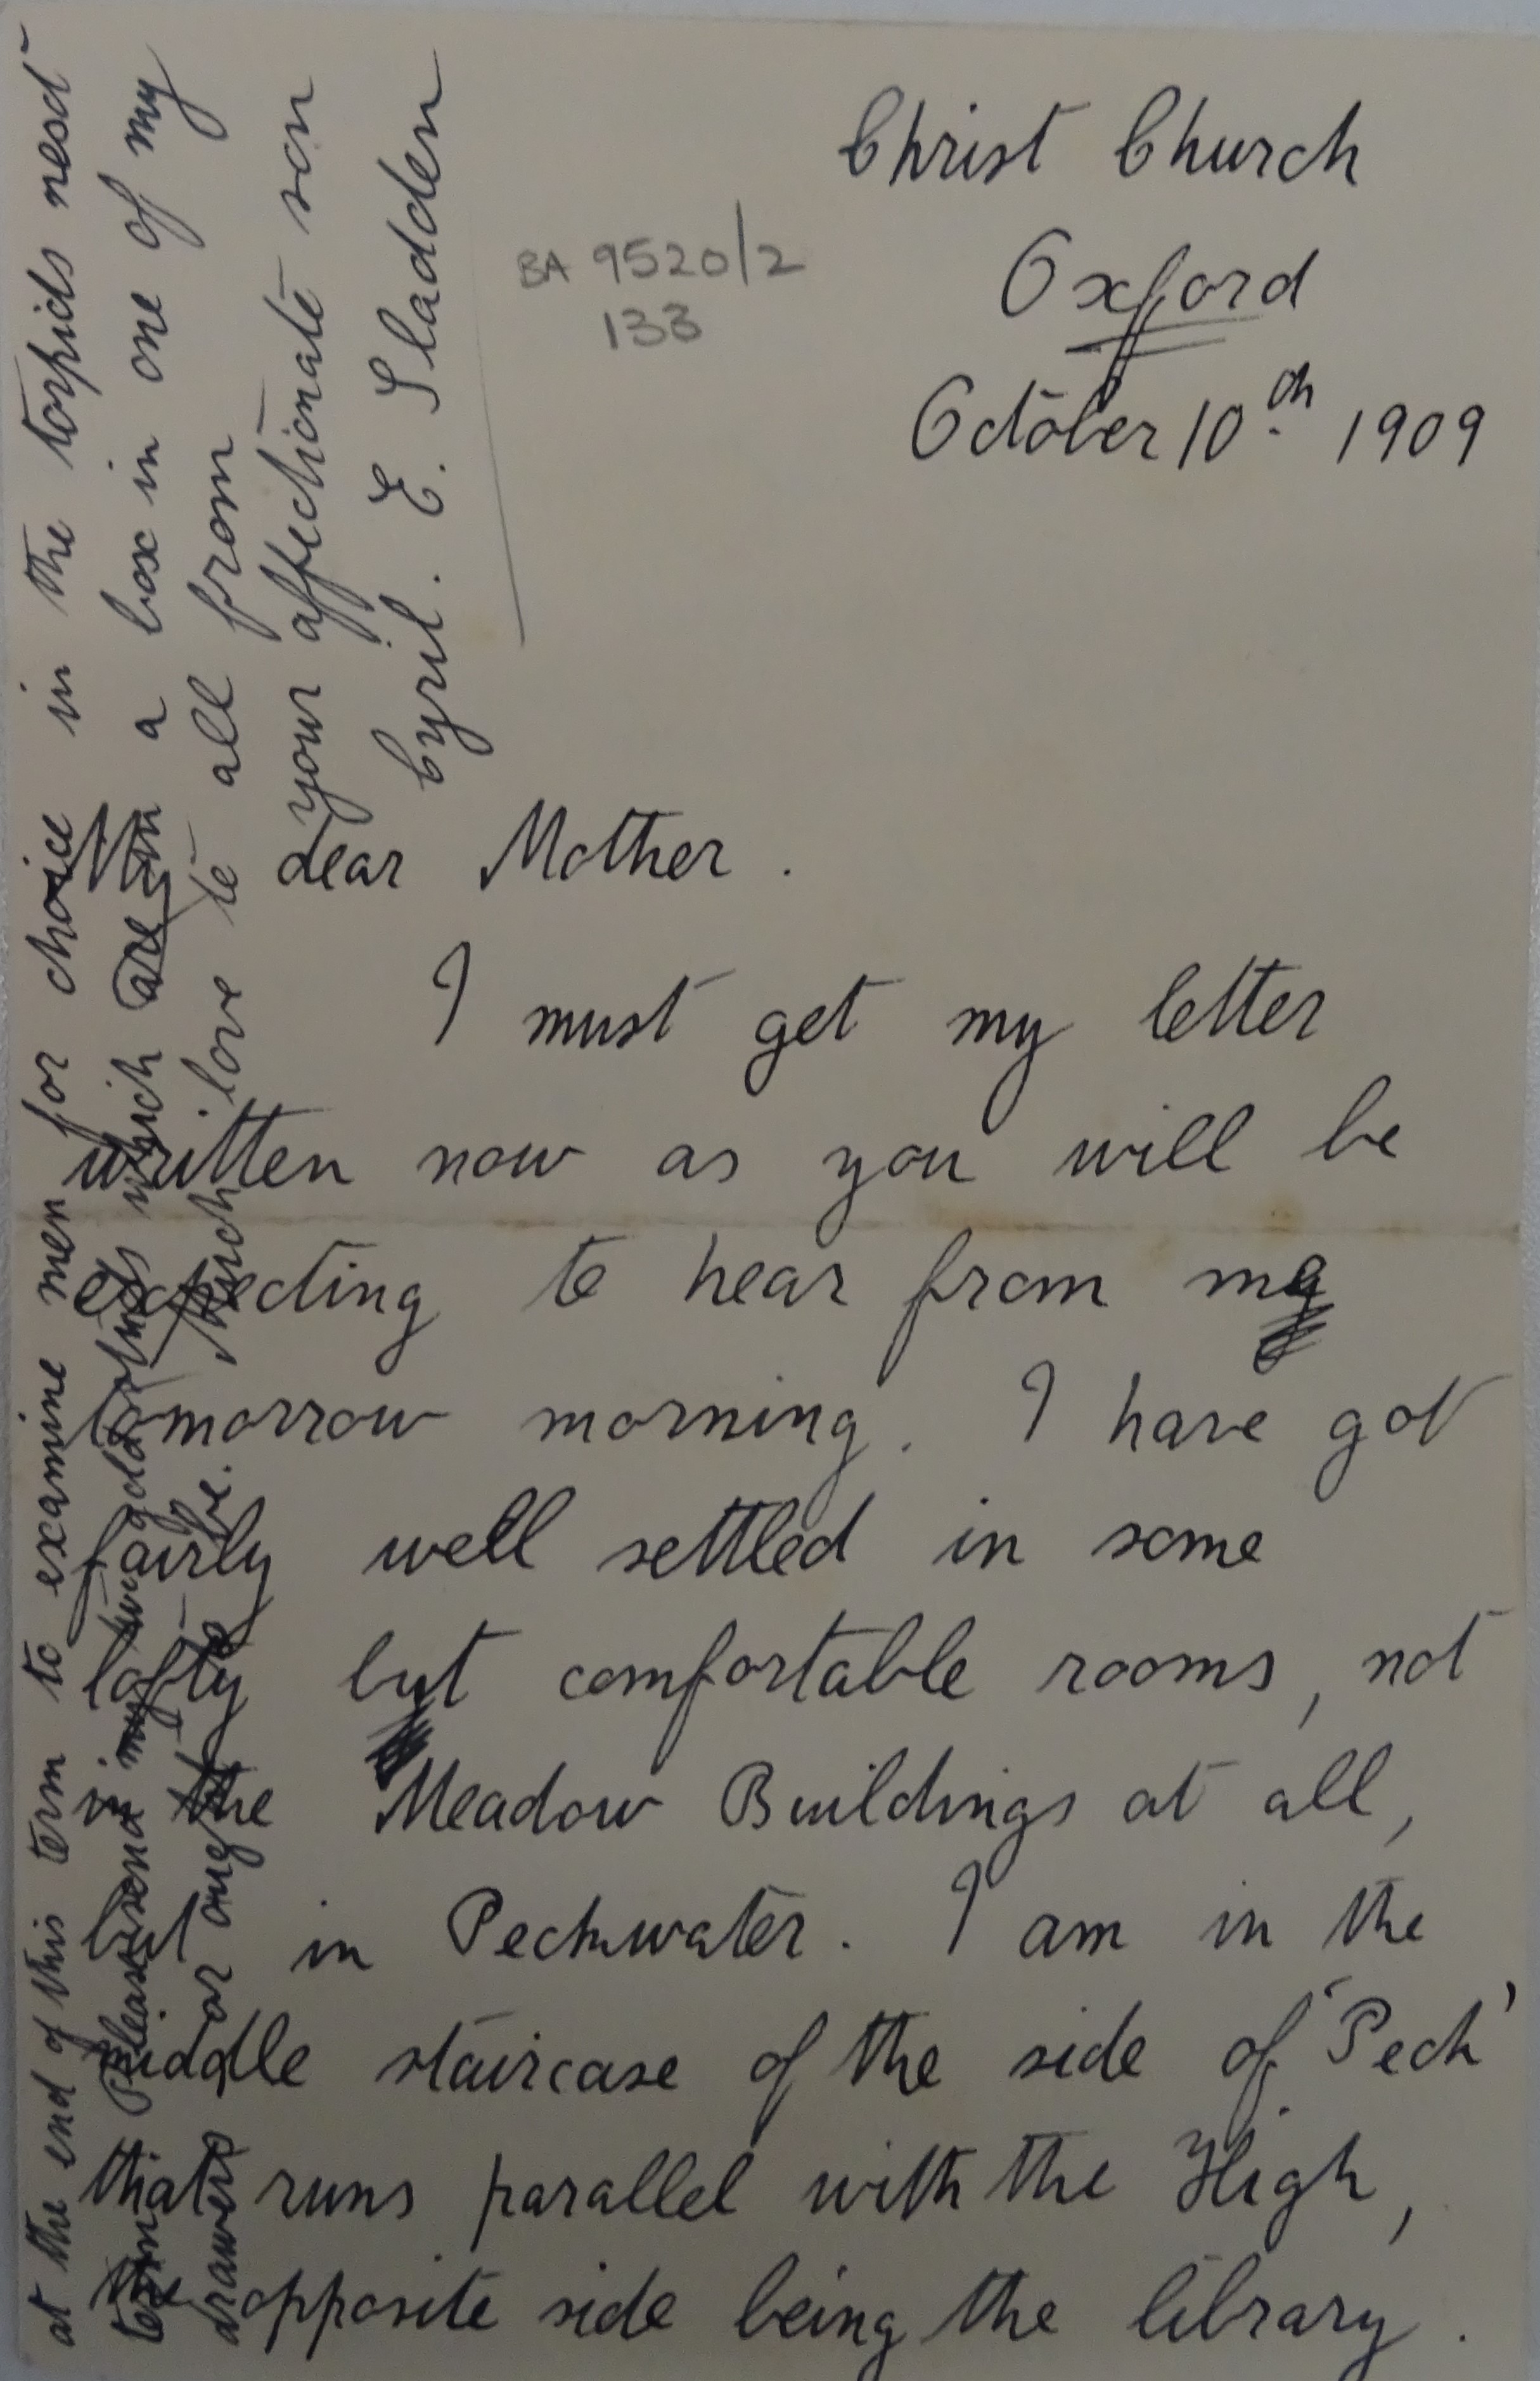 Christ Church
Oxford
October 10th 1909
BA 9520/2
133
My dear Mother.
I must get my letter
written now as you will be
expecting to hear from me
tomorrow morning. I have got
fairly well settled in some
lofty but comfortable rooms, not
in the Meadow Buildings at all,
but in Peckwater. I am in the
middle staircase of the side of 'Peck'
that runs parallel with the High,
the opposite side being the library.
at the end of this term to examine men for choice in the torpids next
term. Please send my two which are in a box in one of my
drawers or ought to be. Much love to all from
your affectionate son
Cyril. E. Sladden